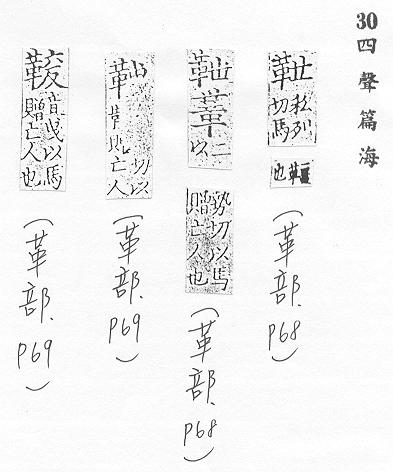 30 四聲篇海
靾 私列切馬韁也
(革部、P68)
靾 二以勢切以馬贈亡人也
(革部、P68)
切以 亡人
(革部、P69)
音曳以馬贈亡人也
(革部、P69)